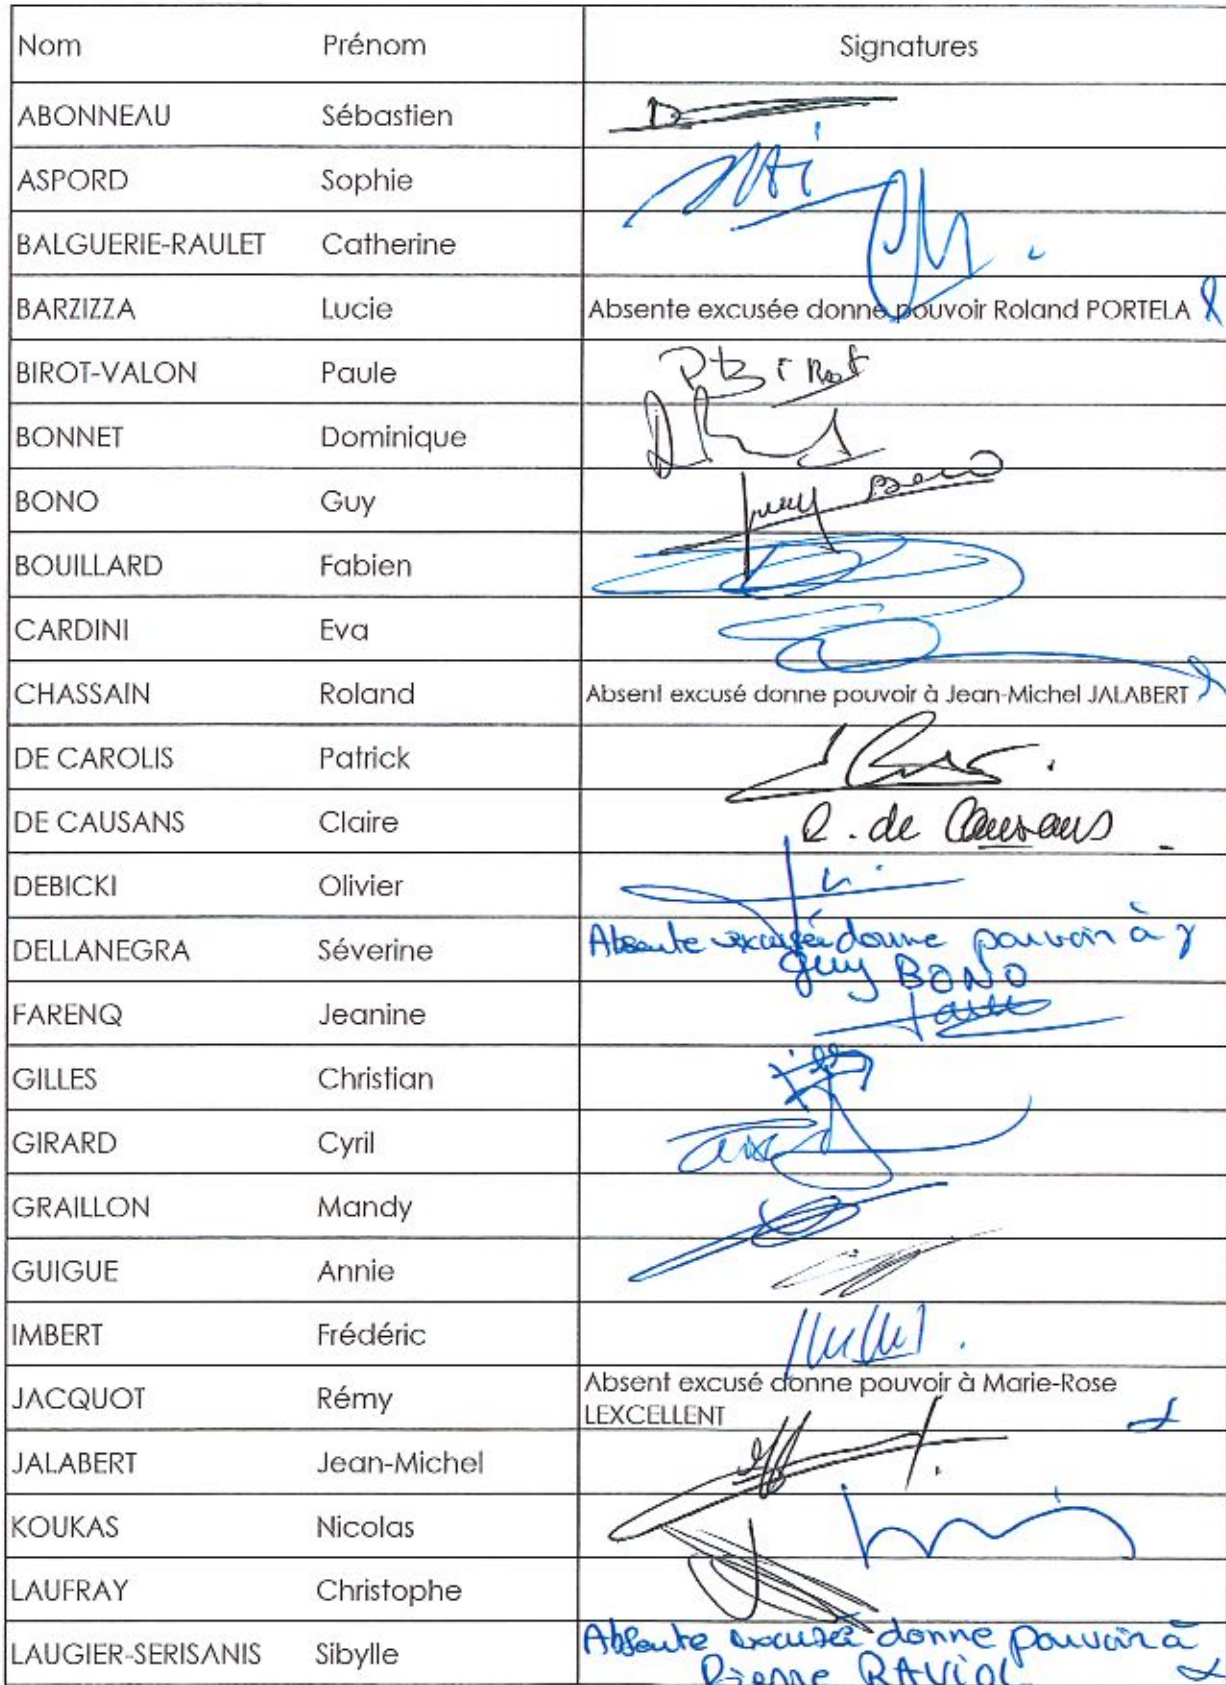 Nom Prénom Signatures
ABONNEAU Sébastien
ASPORD Sophie
BALGUERIE-RAULET Catherine
BARZIZZA Lucie Absente excusée donne pouvoir Roland PORTELA
BIROT-VALON Paule P Birot
BONNET Dominique
BONO Guy Guy Bono
BOUILLARD Fabien
CARDINI Eva
CHASSAIN Roland Absent excusé donne pouvoir à Jean-Michel JALABERT
DE CAROLIS Patrick
DE CAUSANS Claire C. de Causans
DEBICKI Olivier
DELLANEGRA Séverine Absente excusée donne pouvoir à
Guy BONO
FARENQ Jeanine
GILLES Christian
GIRARD Cyril
GRAILLON Mandy
GUIGUE Annie
IMBERT Frédéric
JACQUOT Rémy Absent excusé donne pouvoir à Marie-Rose
LEXCELLENT
JALABERT Jean-Michel
KOUKAS Nicolas
LAUFRAY Christophe
LAUGIER-SERISANIS Sibylle Absente excusée donne pouvoir à
Pierre RAVIOL